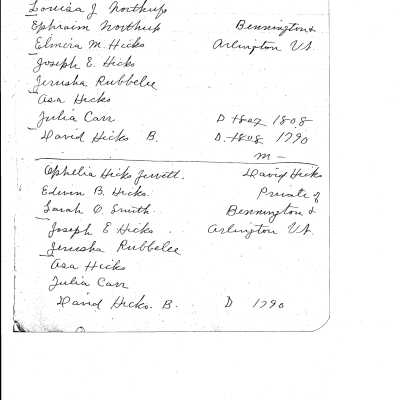 Louisa J Northup
Ephraim Northup Bennington &
Elmira M. Hicks Arlington Vt
Joseph E. Hicks
Jerusha Rubbelee
Asa Hicks
Julia Carr D 1807 1808
David Hicks B. D. 1808 1790
m -
Ophelia Hicks Jewett. David Hicks
Edwin B. Hicks. Private of
Sarah O. Smith. Bennington &
Joseph E Hicks. Arlington Vt.
Jerusha Rubbelee
Asa Hicks
Julia Carr
David Hicks. B. D 1790